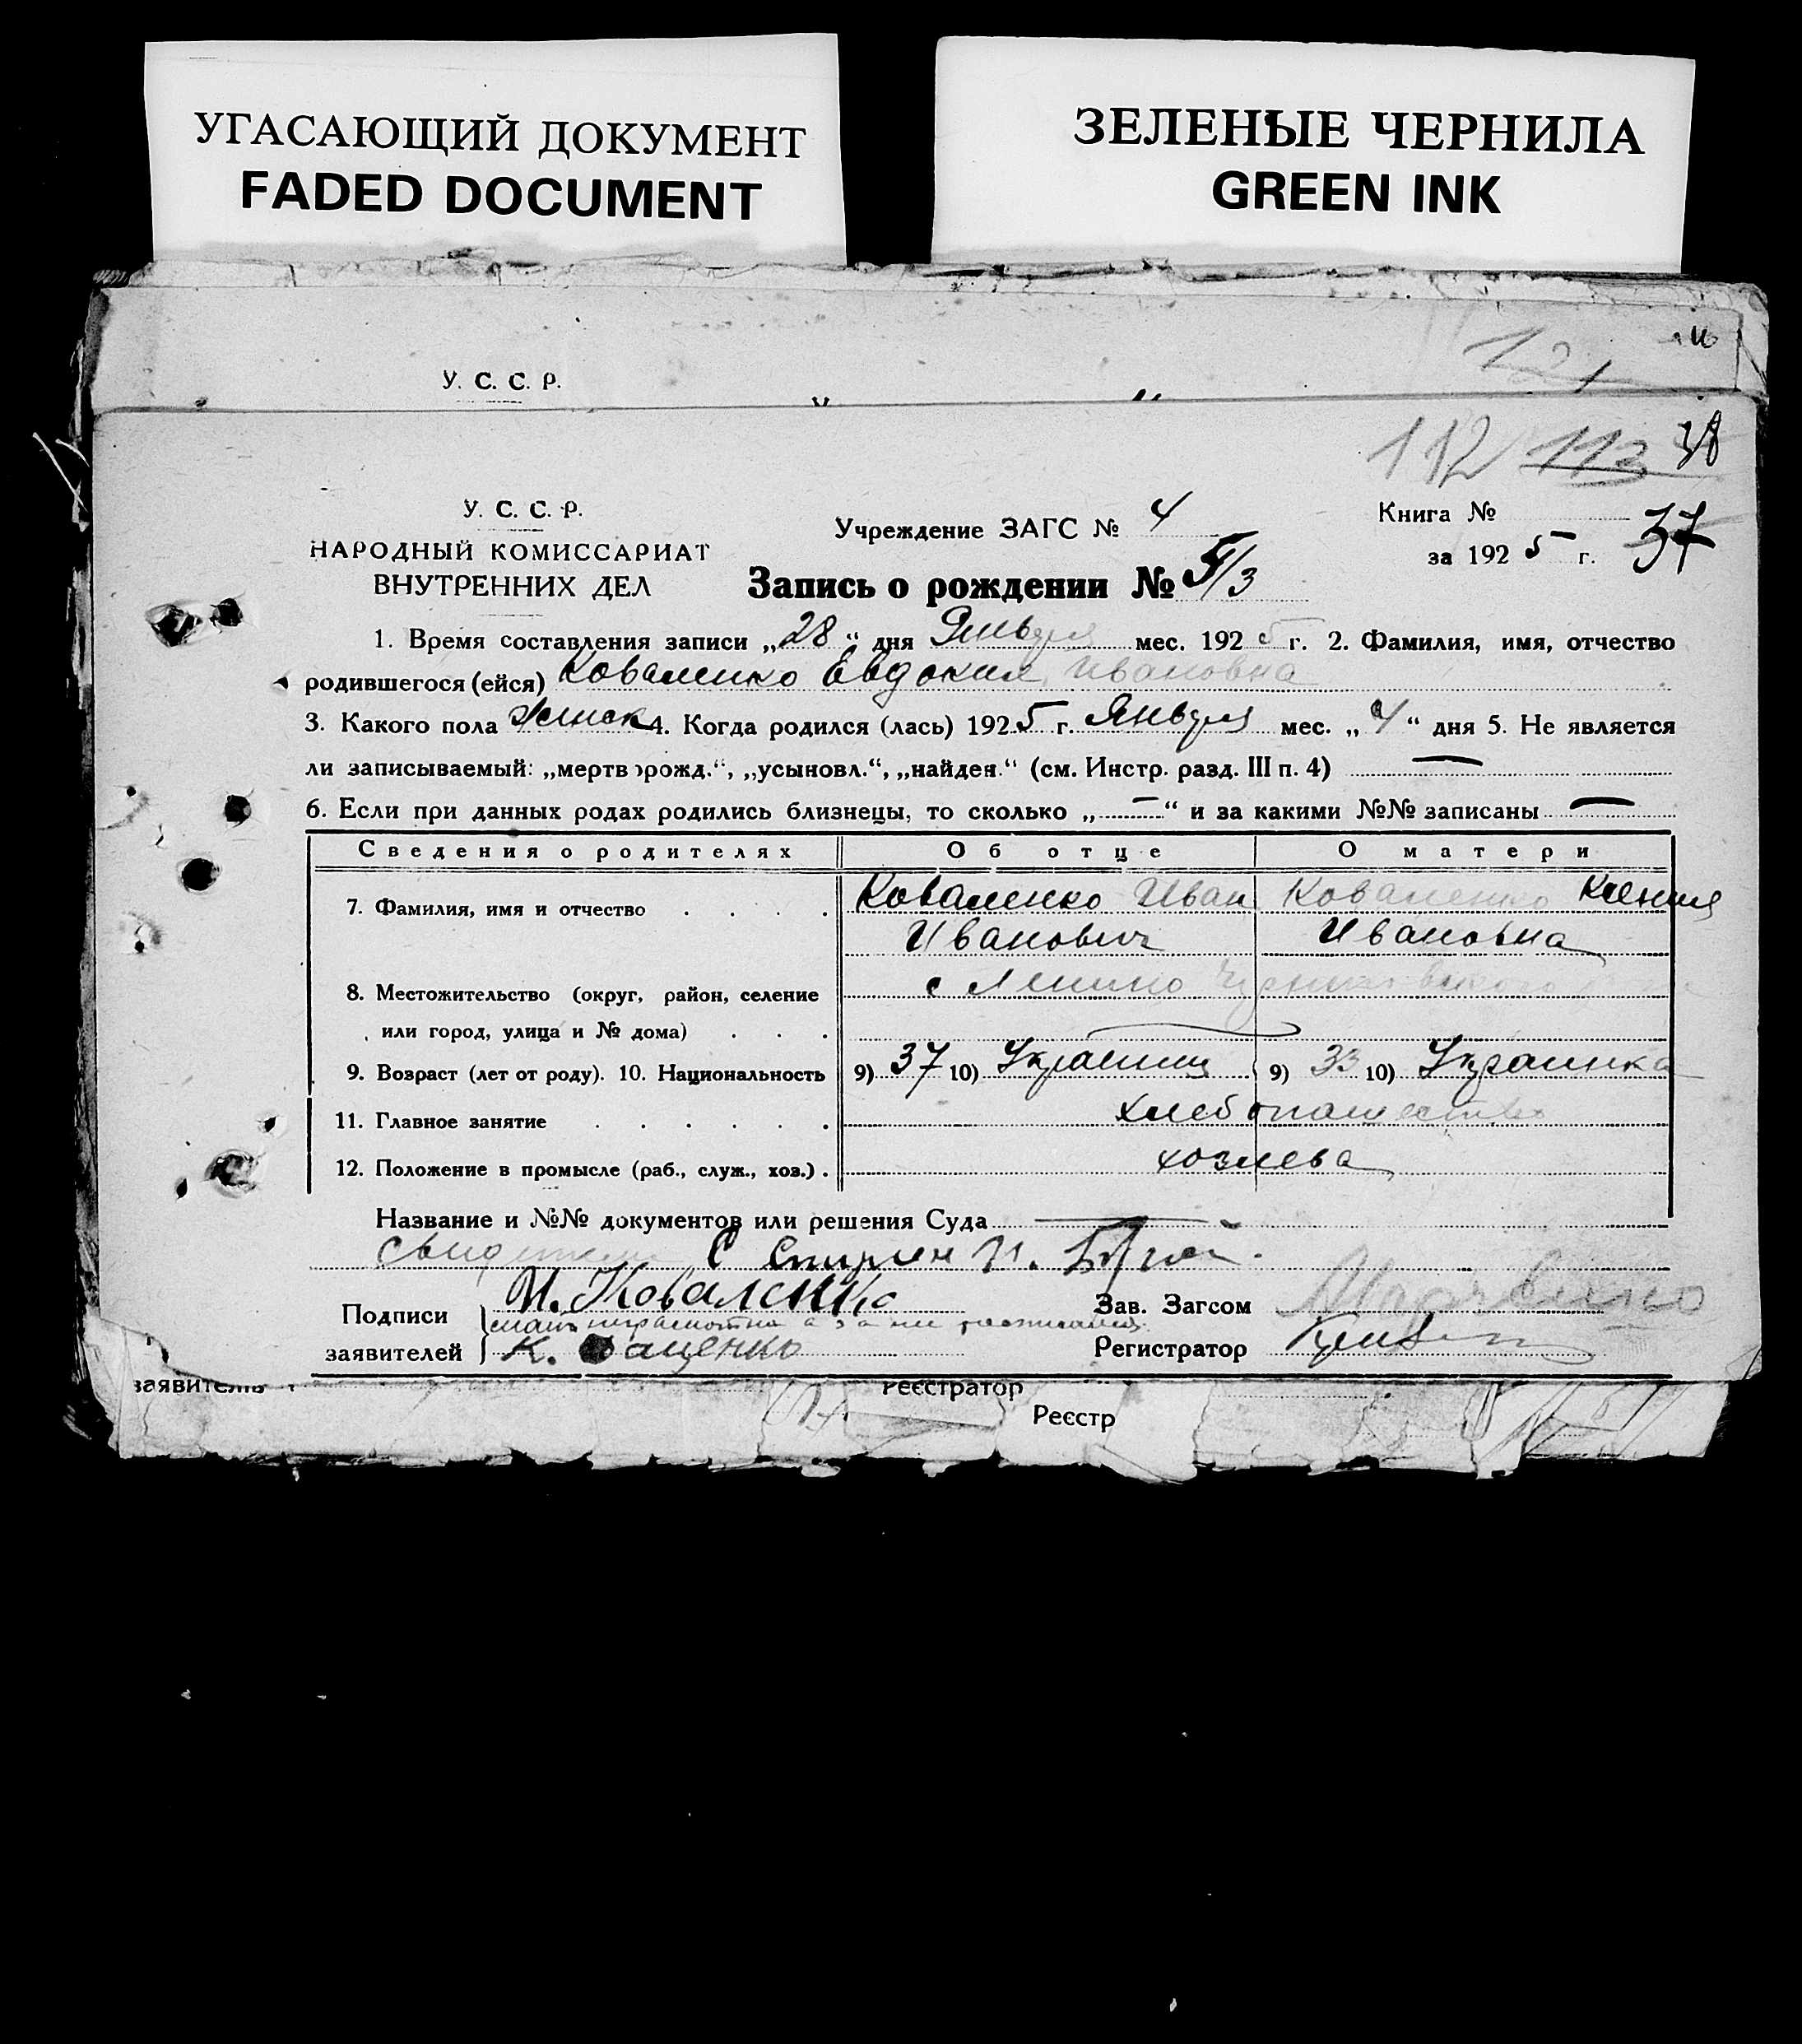 УГАСАЮЩИЙ ДОКУМЕНТ
FADED DOCUMENT
ЗЕЛЕНЫЕ ЧЕРНИЛА
GREEN INK
У. С. С. Р.
121
112 113 38
У. С. С. Р.
НАРОДНЫЙ КОМИССАРИАТ
ВНУТРЕННИХ ДЕЛ
Учреждение ЗАГС № 4
Книга № 37
за 1925 г.
Запись о рождении № 5/3
1. Время составления записи „28“ дня Января мес. 1925 г. 2. Фамилия, имя, отчество
родившегося (ейся) Коваленко Евдокия Ивановна
3. Какого пола женск 4. Когда родился (лась) 1925 г. Января мес. „4“ дня 5. Не является
ли записываемый: „мертворожд.“, „усыновл.“, „найден.“ (см. Инстр. разд. III п. 4) —
6. Если при данных родах родились близнецы, то сколько „—“ и за какими №№ записаны —
Сведения о родителях Об отце О матери
7. Фамилия, имя и отчество . . . . Коваленко Иван Коваленко Ксения
Иванович Ивановна
8. Местожительство (округ, район, селение с Ленино
или город, улица и № дома) . . .
9. Возраст (лет от роду). 10. Национальность 9) 37 10) Украинец 9) 33 10) Украинка
11. Главное занятие . . . . . . хлебопашество
12. Положение в промысле (раб., служ., хоз.) . хозяева
Название и №№ документов или решения Суда —
свидетели С
Подписи заявителей
И. Коваленко
неграмотна а за
К. ащенко
Зав. Загсом
Регистратор
заявитель
Реєстратор
Реєстр